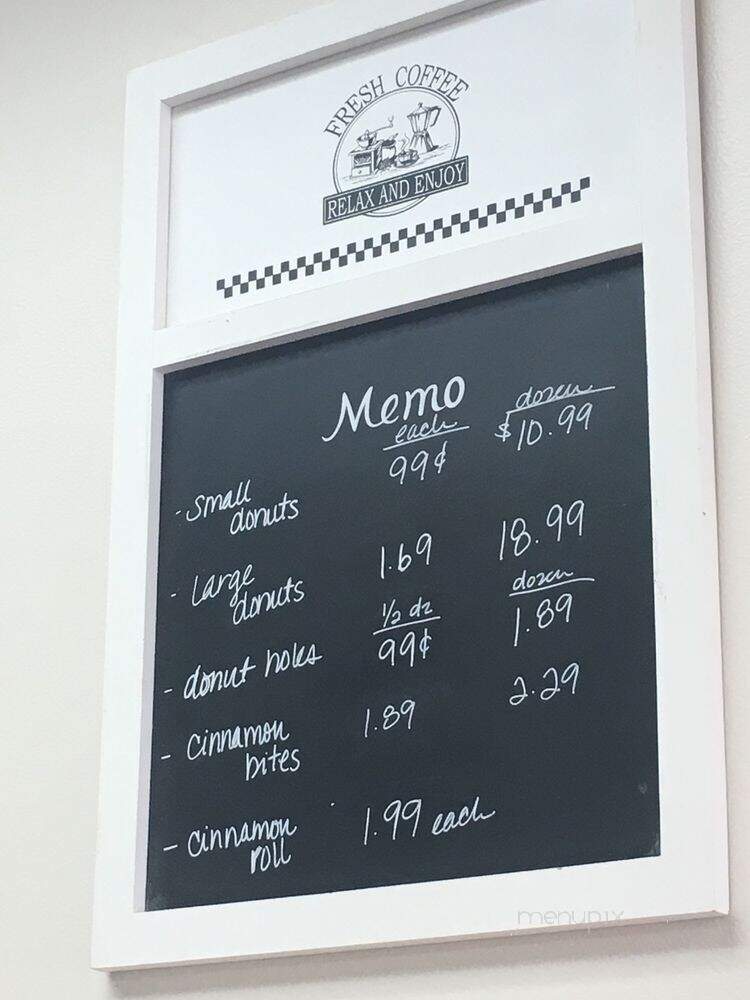 FRESH COFFEE
RELAX AND ENJOY
Memo
each dozen
- Small donuts 99¢ $10.99
- Large donuts 1.69 18.99
1/2 dz dozen
- donut holes 99¢ 1.89
- Cinnamon bites 1.89 2.29
- Cinnamon roll 1.99 each
menupix